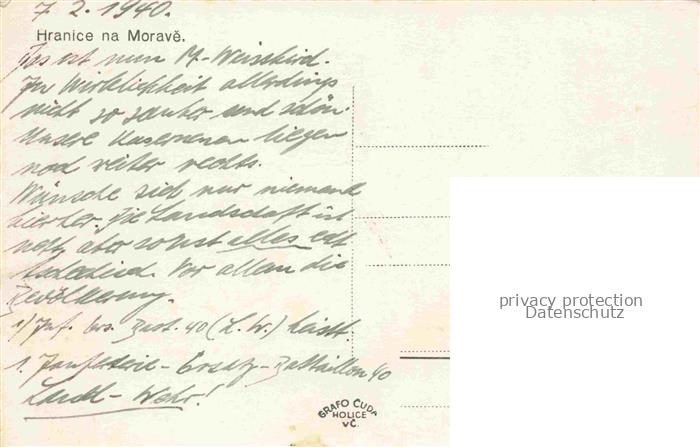 7. 2. 1940.
Hranice na Moravě.
Das ist nun M.-Weisskird.
In Wirklichkeit allerdings
nicht so sauber und schön.
Unsere Kasernenen liegen
noch weiter rechts.
Wünsche sich nur niemand
hierher. Die Landschaft ist
nett, aber sonst alles echt
Vor allem die
Bevölkerung.
1) Inf. Ers. Batt. 40 (L. W.)
1. Infanterie-Ersatz-Bataillon 40
Land-Wehr!
privacy protection
Datenschutz
GRAFO ČUDA
HOLICE
V.Č.